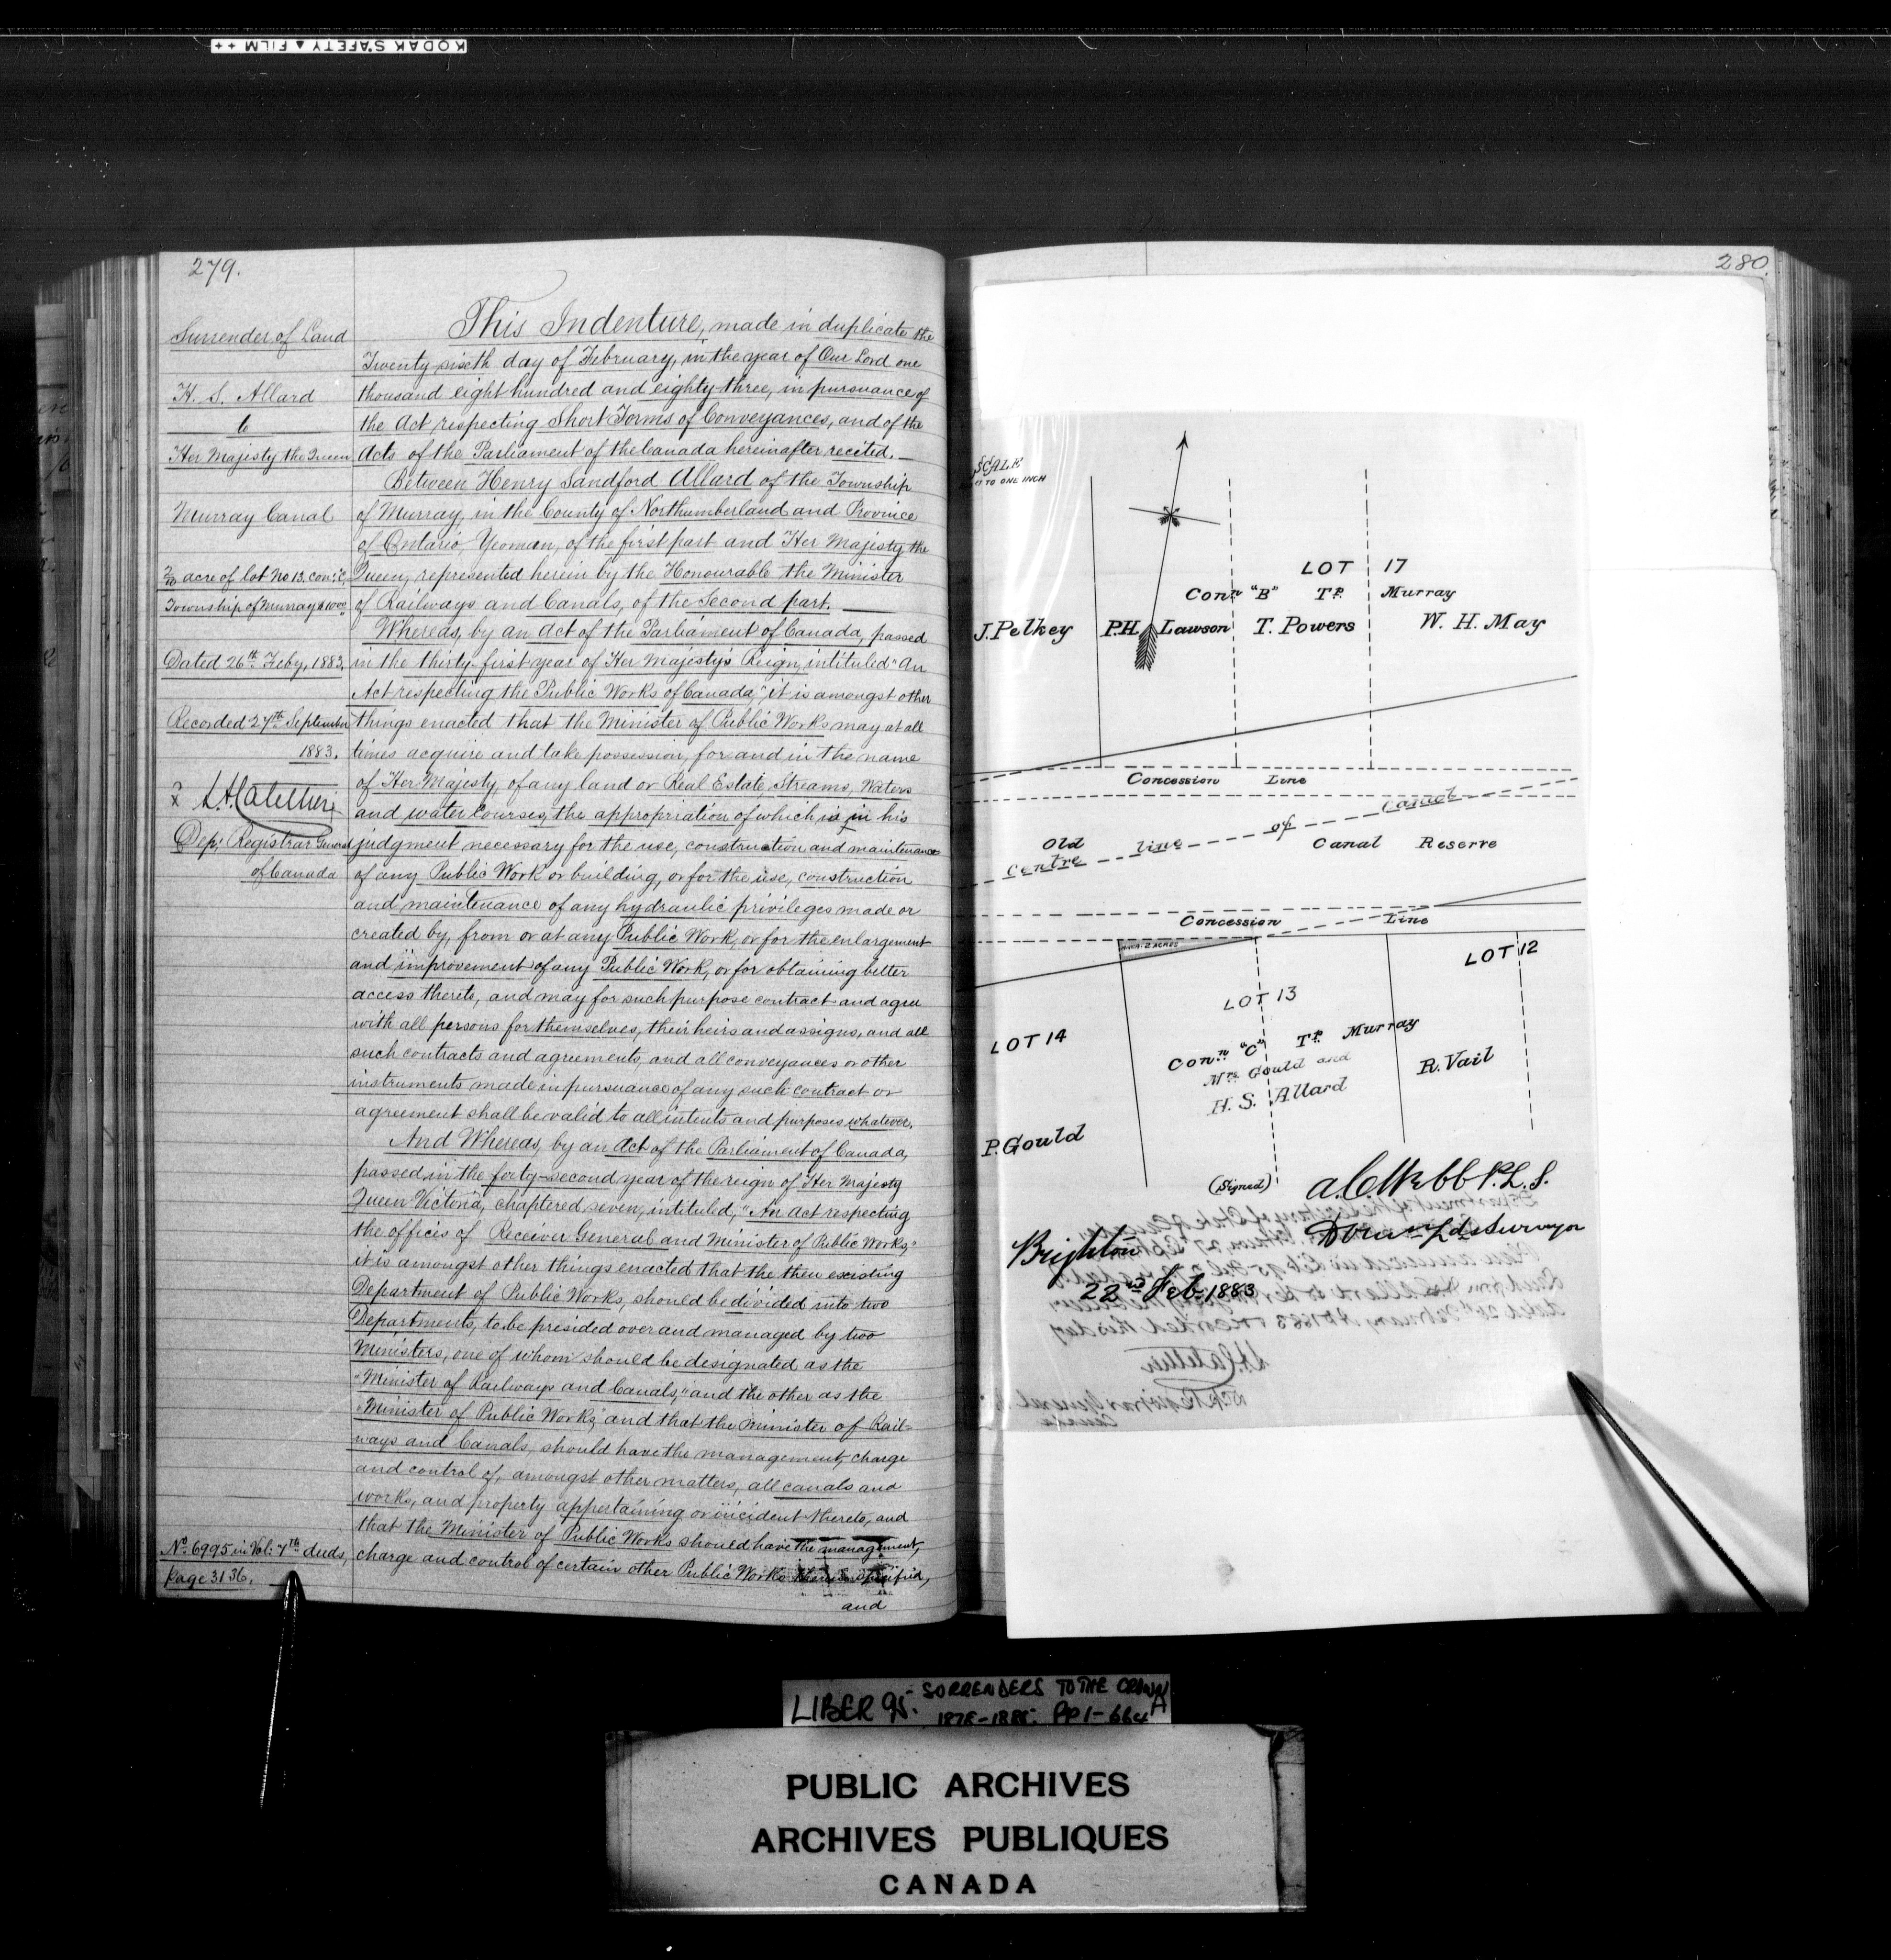 KODAK SAFETY ▲ FILM ++
279.
Surrender of Land
H. S. Allard
to
Her Majesty the Queen
Murray Canal
2/10 acre of lot No 13. con: "C"
Township of Murray $10.00
Dated 26th Feby, 1883.
Recorded 27th September
1883.
L.A. Catellier
Dep: Registrar General
of Canada
No. 6995 in Vol: 7th deeds,
Page 3136.
This Indenture, made in duplicate the
Twenty sixth day of February, in the year of Our Lord one
thousand eight hundred and eighty-three, in pursuance of
the Act respecting Short Forms of Conveyances, and of the
Acts of the Parliament of the Canada hereinafter recited.
Between Henry Sandford Allard of the Township
of Murray, in the County of Northumberland and Province
of Ontario, Yeoman, of the first part and Her Majesty the
Queen, represented herein by the Honourable the Minister
of Railways and Canals, of the Second part.
Whereas, by an Act of the Parliament of Canada, passed
in the thirty-first year of Her Majesty's Reign, intituled "An
Act respecting the Public Works of Canada," it is amongst other
things enacted that the Minister of Public Works may at all
times acquire and take possession, for and in the name
of Her Majesty, of any land or Real Estate, Streams, Waters
and water courses, the appropriation of which is in his
judgment necessary for the use, construction and maintenance
of any Public Work or building, or for the use, construction
and maintenance of any hydraulic privileges made or
created by, from or at any Public Work, or for the enlargement
and improvement of any Public Work, or for obtaining better
access thereto, and may for such purpose contract and agree
with all persons for themselves, their heirs and assigns, and all
such contracts and agreements, and all conveyances or other
instruments made in pursuance of any such contract or
agreement shall be valid to all intents and purposes whatever.
And Whereas, by an Act of the Parliament of Canada,
passed in the forty-second year of the reign of Her Majesty
Queen Victoria, chaptered seven, intituled, "An Act respecting
the offices of Receiver General and Minister of Public Works,"
it is amongst other things enacted that the then existing
Department of Public Works, should be divided into two
Departments, to be presided over and managed by two
Ministers, one of whom should be designated as the
"Minister of Railways and Canals," and the other as the
"Minister of Public Works," and that the Minister of Rail-
ways and Canals, should have the management, charge
and control of, amongst other matters, all canals and
works, and property appertaining or incident thereto, and
that the Minister of Public Works should have the management,
charge and control of certain other Public Works therein specified,
and
280.
SCALE
TO ONE INCH
LOT 17
Conn "B" Tp. Murray
J. Pelkey P.H. Lawson T. Powers W. H. May
Concession Line
Old Centre line of Canal
Canal Reserve
Concession Line
AREA .2 ACRES
LOT 12
LOT 13
LOT 14
Conn. "C" Tp. Murray
Mrs. Gould and
H. S. Allard
R. Vail
P. Gould
(Signed) A. C. Webb P. L. S.
Domn. Lds Surveyor
Brighton
22nd Feb. 1883
LIBER 95. SURRENDERS TO THE CROWN
1878-1885. PP 1-664A
PUBLIC ARCHIVES
ARCHIVES PUBLIQUES
CANADA